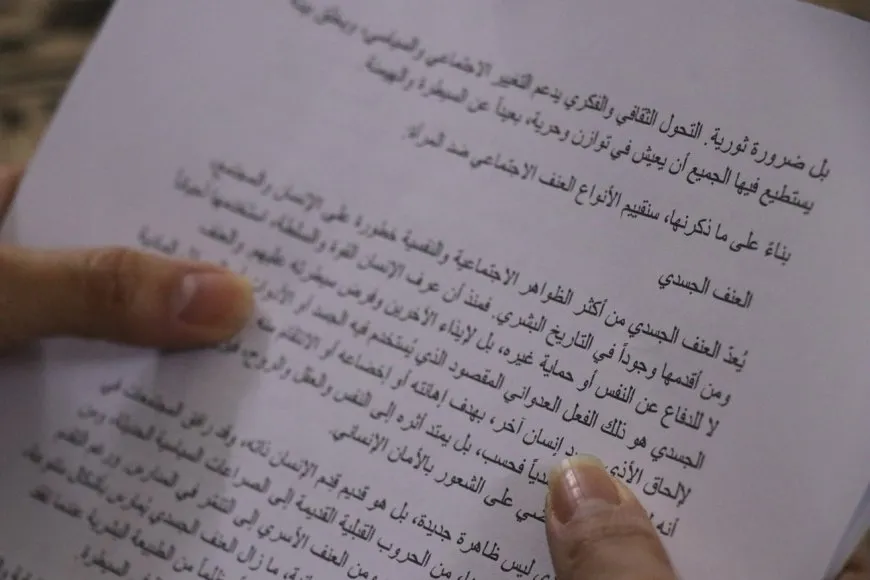 بل ضرورة ثورية. التحول الثقافي والفكري يدعم التغيير الاجتماعي والسياسي، ويخلق بيئة
يستطيع فيها الجميع أن يعيش في توازن وحرية، بعيداً عن السيطرة والهيمنة
بناءً على ما ذكرنها، سنقييم الأنواع العنف الاجتماعي ضد المرأة:
العنف الجسدي
يُعدّ العنف الجسدي من أكثر الظواهر الاجتماعية والنفسية خطورة على الإنسان والمجتمع،
ومن أقدمها وجوداً في التاريخ البشري. فمنذ أن عرف الإنسان القوة والسلطة، استخدمها أحياناً
لا للدفاع عن النفس أو حماية غيره، بل لإيذاء الآخرين وفرض سيطرته عليهم. والعنف
الجسدي هو ذلك الفعل العدواني المقصود الذي يُستخدم فيه الجسد أو الأدوات المادية
لإلحاق الأذى إنسان آخر، بهدف إهانته أو إخضاعه أو الانتقام منه
أنه جسدياً فحسب، بل يمتد أثره إلى النفس والعقل والروح،
على الشعور بالأمان الإنساني.
ليس ظاهرة جديدة، بل هو قديم قدم الإنسان ذاته، وقد رافق المجتمعات في
من الحروب القبلية القديمة إلى الصراعات السياسية الحديثة، ومن
ومن العنف الأسري إلى التنمر في المدارس. ورغم التقدم
ما زال العنف الجسدي يُمارس بأشكال متنوعة،
من الطبيعة البشرية عندما تفقد
السيطرة.